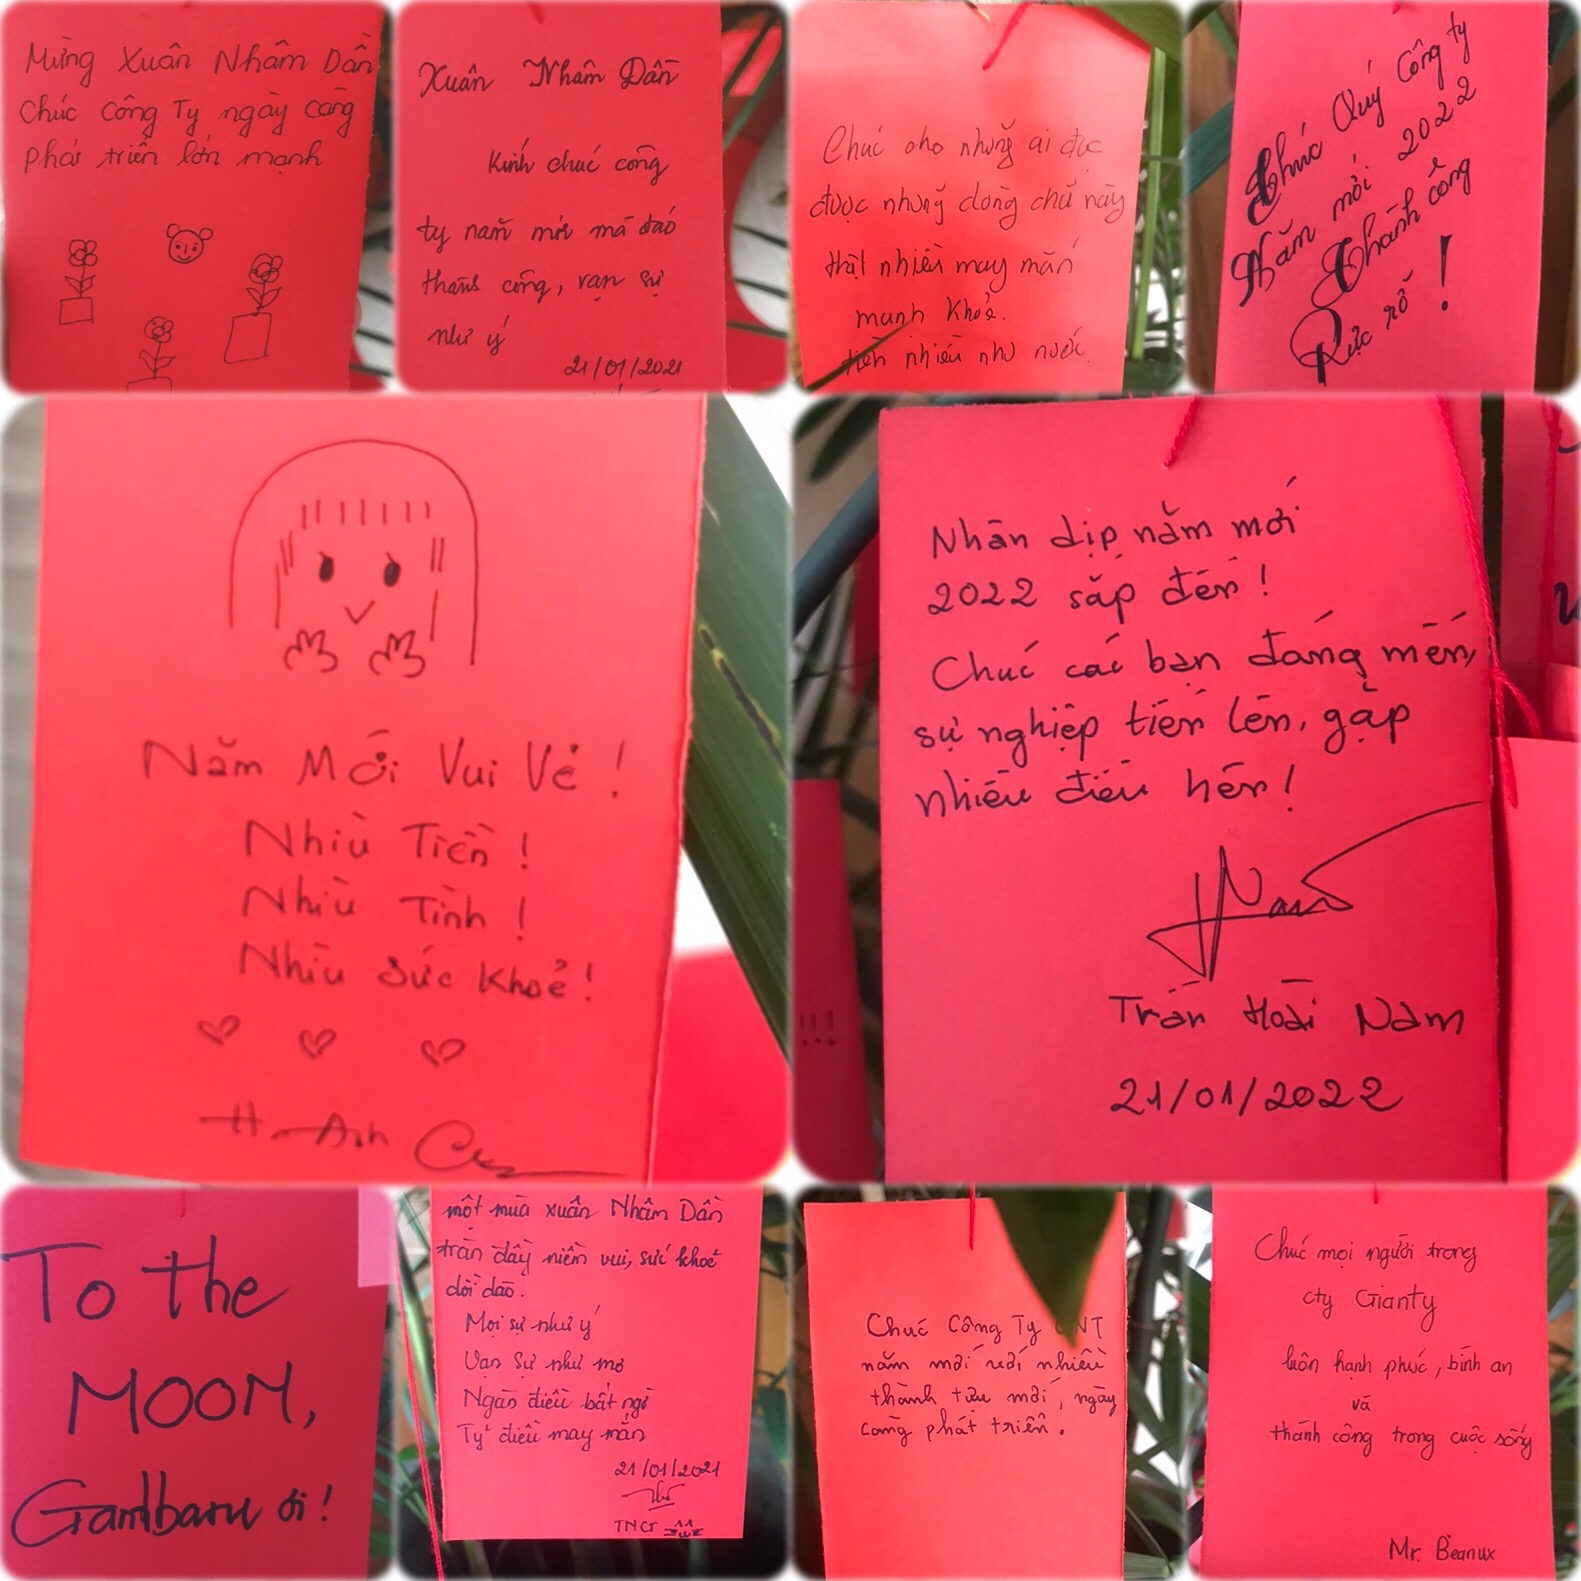 Mừng Xuân Nhâm Dần
Chúc Công Ty ngày càng
phát triển lớn mạnh
Xuân Nhâm Dần
Kính chúc công
ty năm mới mã đáo
thành công, vạn sự
như ý
21/01/2021
Chúc cho những ai đọc
được những dòng chữ này
thật nhiều may mắn
mạnh khỏe.
tiền nhiều như nước.
Chúc Quý Công ty
Năm mới 2022
Thành công
Rực rỡ !
Năm Mới Vui Vẻ !
Nhìu Tiền !
Nhìu Tình !
Nhìu Sức Khoẻ !
Nhân dịp năm mới
2022 sắp đến !
Chúc các bạn đáng mến,
sự nghiệp tiến lên, gặp
nhiều điều hên !
Nam
Trần Hoài Nam
21/01/2022
To the
MOON,
Gambaru ơi !
một mùa xuân Nhâm Dần
tràn đầy niềm vui, sức khoẻ
dồi dào.
Mọi sự như ý
Vạn sự như mơ
Ngàn điều bất ngờ
Tỷ điều may mắn
21/01/2021
TNCT
Chúc Công Ty
năm mới với nhiều
thành tựu mới, ngày
càng phát triển.
Chúc mọi người trong
cty Gianty
luôn hạnh phúc, bình an
và
thành công trong cuộc sống
Mr. Beanux
!!!